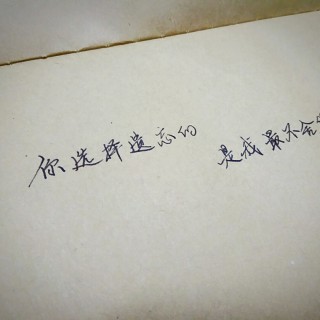 你选择遗忘的 是我最不舍